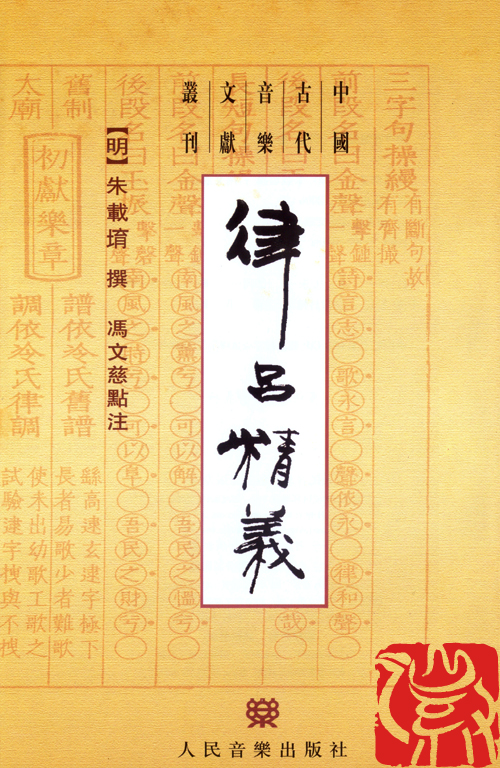 中國
古代
音樂
文獻
叢刊
律呂精義
【明】朱載堉 撰 馮文慈點注
三字句操縵
有斷句故
有齊撮
前段名曰金聲
詩言志○歌永言○聲依永○律和聲○
後段名曰玉
哉○
長短句操
前段名曰金聲
南風之薰兮○可以解○吾民之慍兮○
後段名曰玉振
南風之時兮○可以阜○吾民之財兮○
舊制
太廟
初獻樂章
譜依冷氏舊譜
調依冷氏律調
高逮玄逮字極下
長者易歌少者難歌
使未出幼歌工歌之
試驗逮字拽與不拽
人民音樂出版社